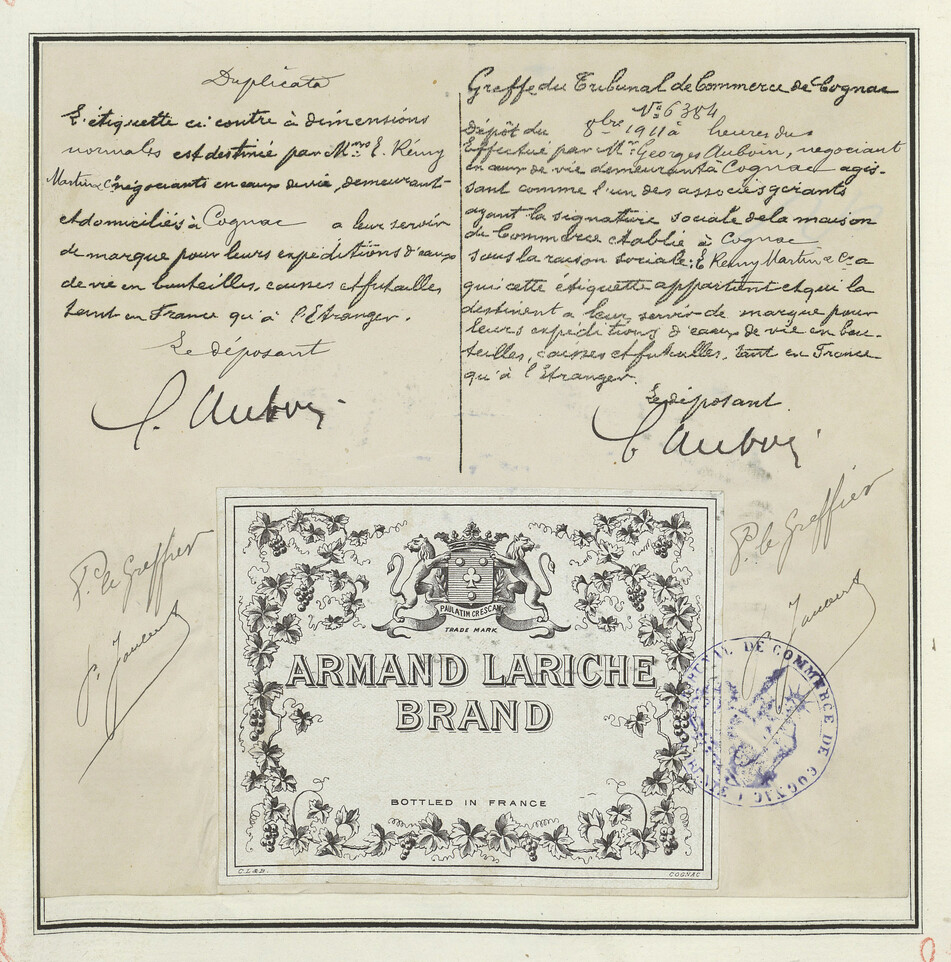 Duplicata
L'étiquette ci contre à dimensions
normales est destiné par Mrs E. Rémy
Martin & Cie négociants en eaux de vie, demeurant
et domiciliés à Cognac a leur servir
de marque pour leurs expéditions d'eaux
de vie en bouteilles, caisses et futailles
tant en France qu'à l'Etranger.
Le déposant
G. Auboin
Greffe du Tribunal de Commerce de Cognac
No 6384
Dépôt du 8bre 1911 à heures du
Effectué par Mr Georges Auboin, negociant
en eaux de vie demeurant à Cognac agis-
sant comme l'un des associés gérants
ayant la signature sociale de la maison
de Commerce etablie à Cognac
sous la raison sociale: E. Remy Martin & Cie a
qui cette étiquette appartient et qui la
destinent a leur servir de marque pour
leurs expeditions d'eaux de vie en bou-
teilles, caisses et futailles, tant en France
qu'à l'Etranger.
Le déposant
G Auboin
Pr le Greffier
Pr le Greffier
PAULATIM CRESCAM
TRADE MARK
ARMAND LARICHE
BRAND
BOTTLED IN FRANCE
C. L & D.
COGNAC
TRIBUNAL DE COMMERCE DE COGNAC